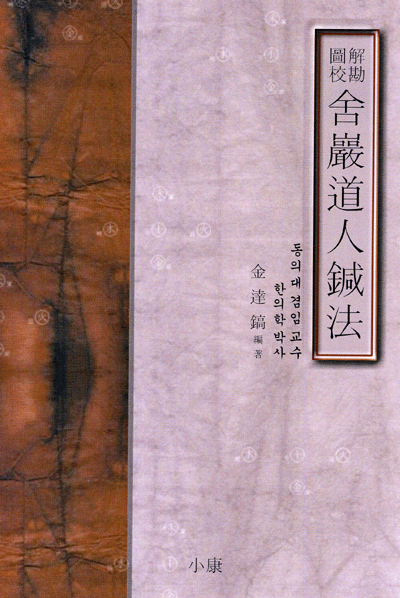 勘校
解圖
舍巖道人鍼法
동의대 겸임 교수
한의학 박사
金達鎬 編著
小康